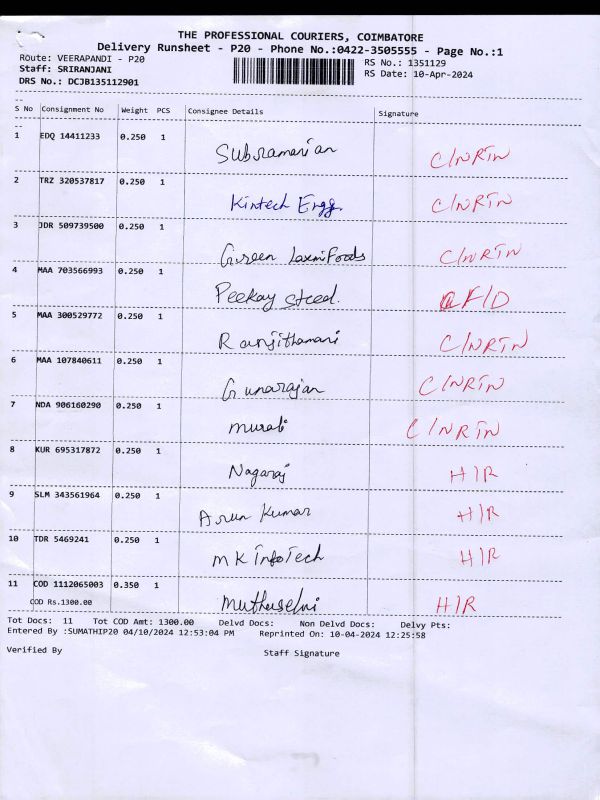 THE PROFESSIONAL COURIERS, COIMBATORE
Delivery Runsheet - P20 - Phone No.:0422-3505555 - Page No.:1
Route: VEERAPANDI - P20 RS No.: 1351129
Staff: SRIRANJANI RS Date: 10-Apr-2024
DRS No.: DCJB135112901
S No Consignment No Weight PCS Consignee Details Signature
1 EDQ 14411233 0.250 1 Subramanian C/NRTN
2 TRZ 320537817 0.250 1 Kintech Engg. C/NRTN
3 JDR 509739500 0.250 1 Green Laxmi Foods C/NRTN
4 MAA 703566993 0.250 1 Peekay steed. F/D
5 MAA 300529772 0.250 1 Ranjithamani C/NRTN
6 MAA 107840611 0.250 1 Gunarajan C/NRTN
7 NDA 906160290 0.250 1 murali C/NRTN
8 KUR 695317872 0.250 1 Nagaraj H/R
9 SLM 343561964 0.250 1 Arun Kumar H/R
10 TDR 5469241 0.250 1 MK InfoTech H/R
11 COD 1112065003 0.350 1 Muthuselvi H/R
COD Rs.1300.00
Tot Docs: 11 Tot COD Amt: 1300.00 Delvd Docs: Non Delvd Docs: Delvy Pts:
Entered By :SUMATHIP20 04/10/2024 12:53:04 PM Reprinted On: 10-04-2024 12:25:58
Verified By Staff Signature